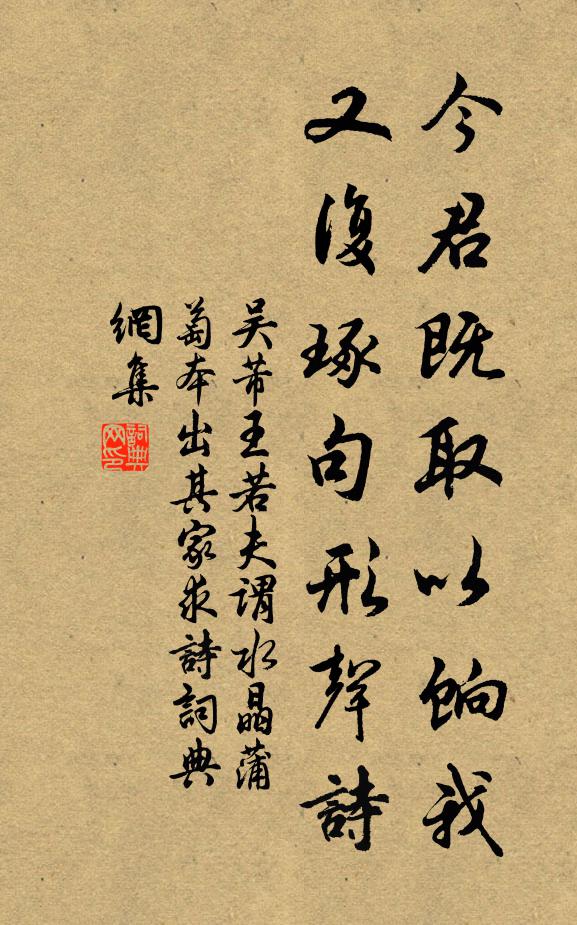 今君既取以餉我
又復琢句形聲詩
吳芾王若夫謂水晶蒲
萄本出其家求詩詞典
網集
詞典
網印